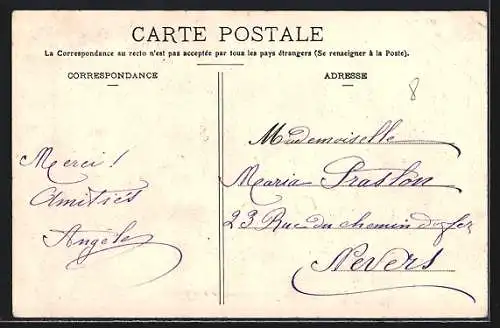 CARTE POSTALE
La Correspondance au recto n'est pas acceptée par tous les pays étrangers (Se renseigner à la Poste).
CORRESPONDANCE
Merci!
Amitiés
Angèle
ADRESSE
8
Mademoiselle
Maria
23 Rue du chemin de fer
Nevers